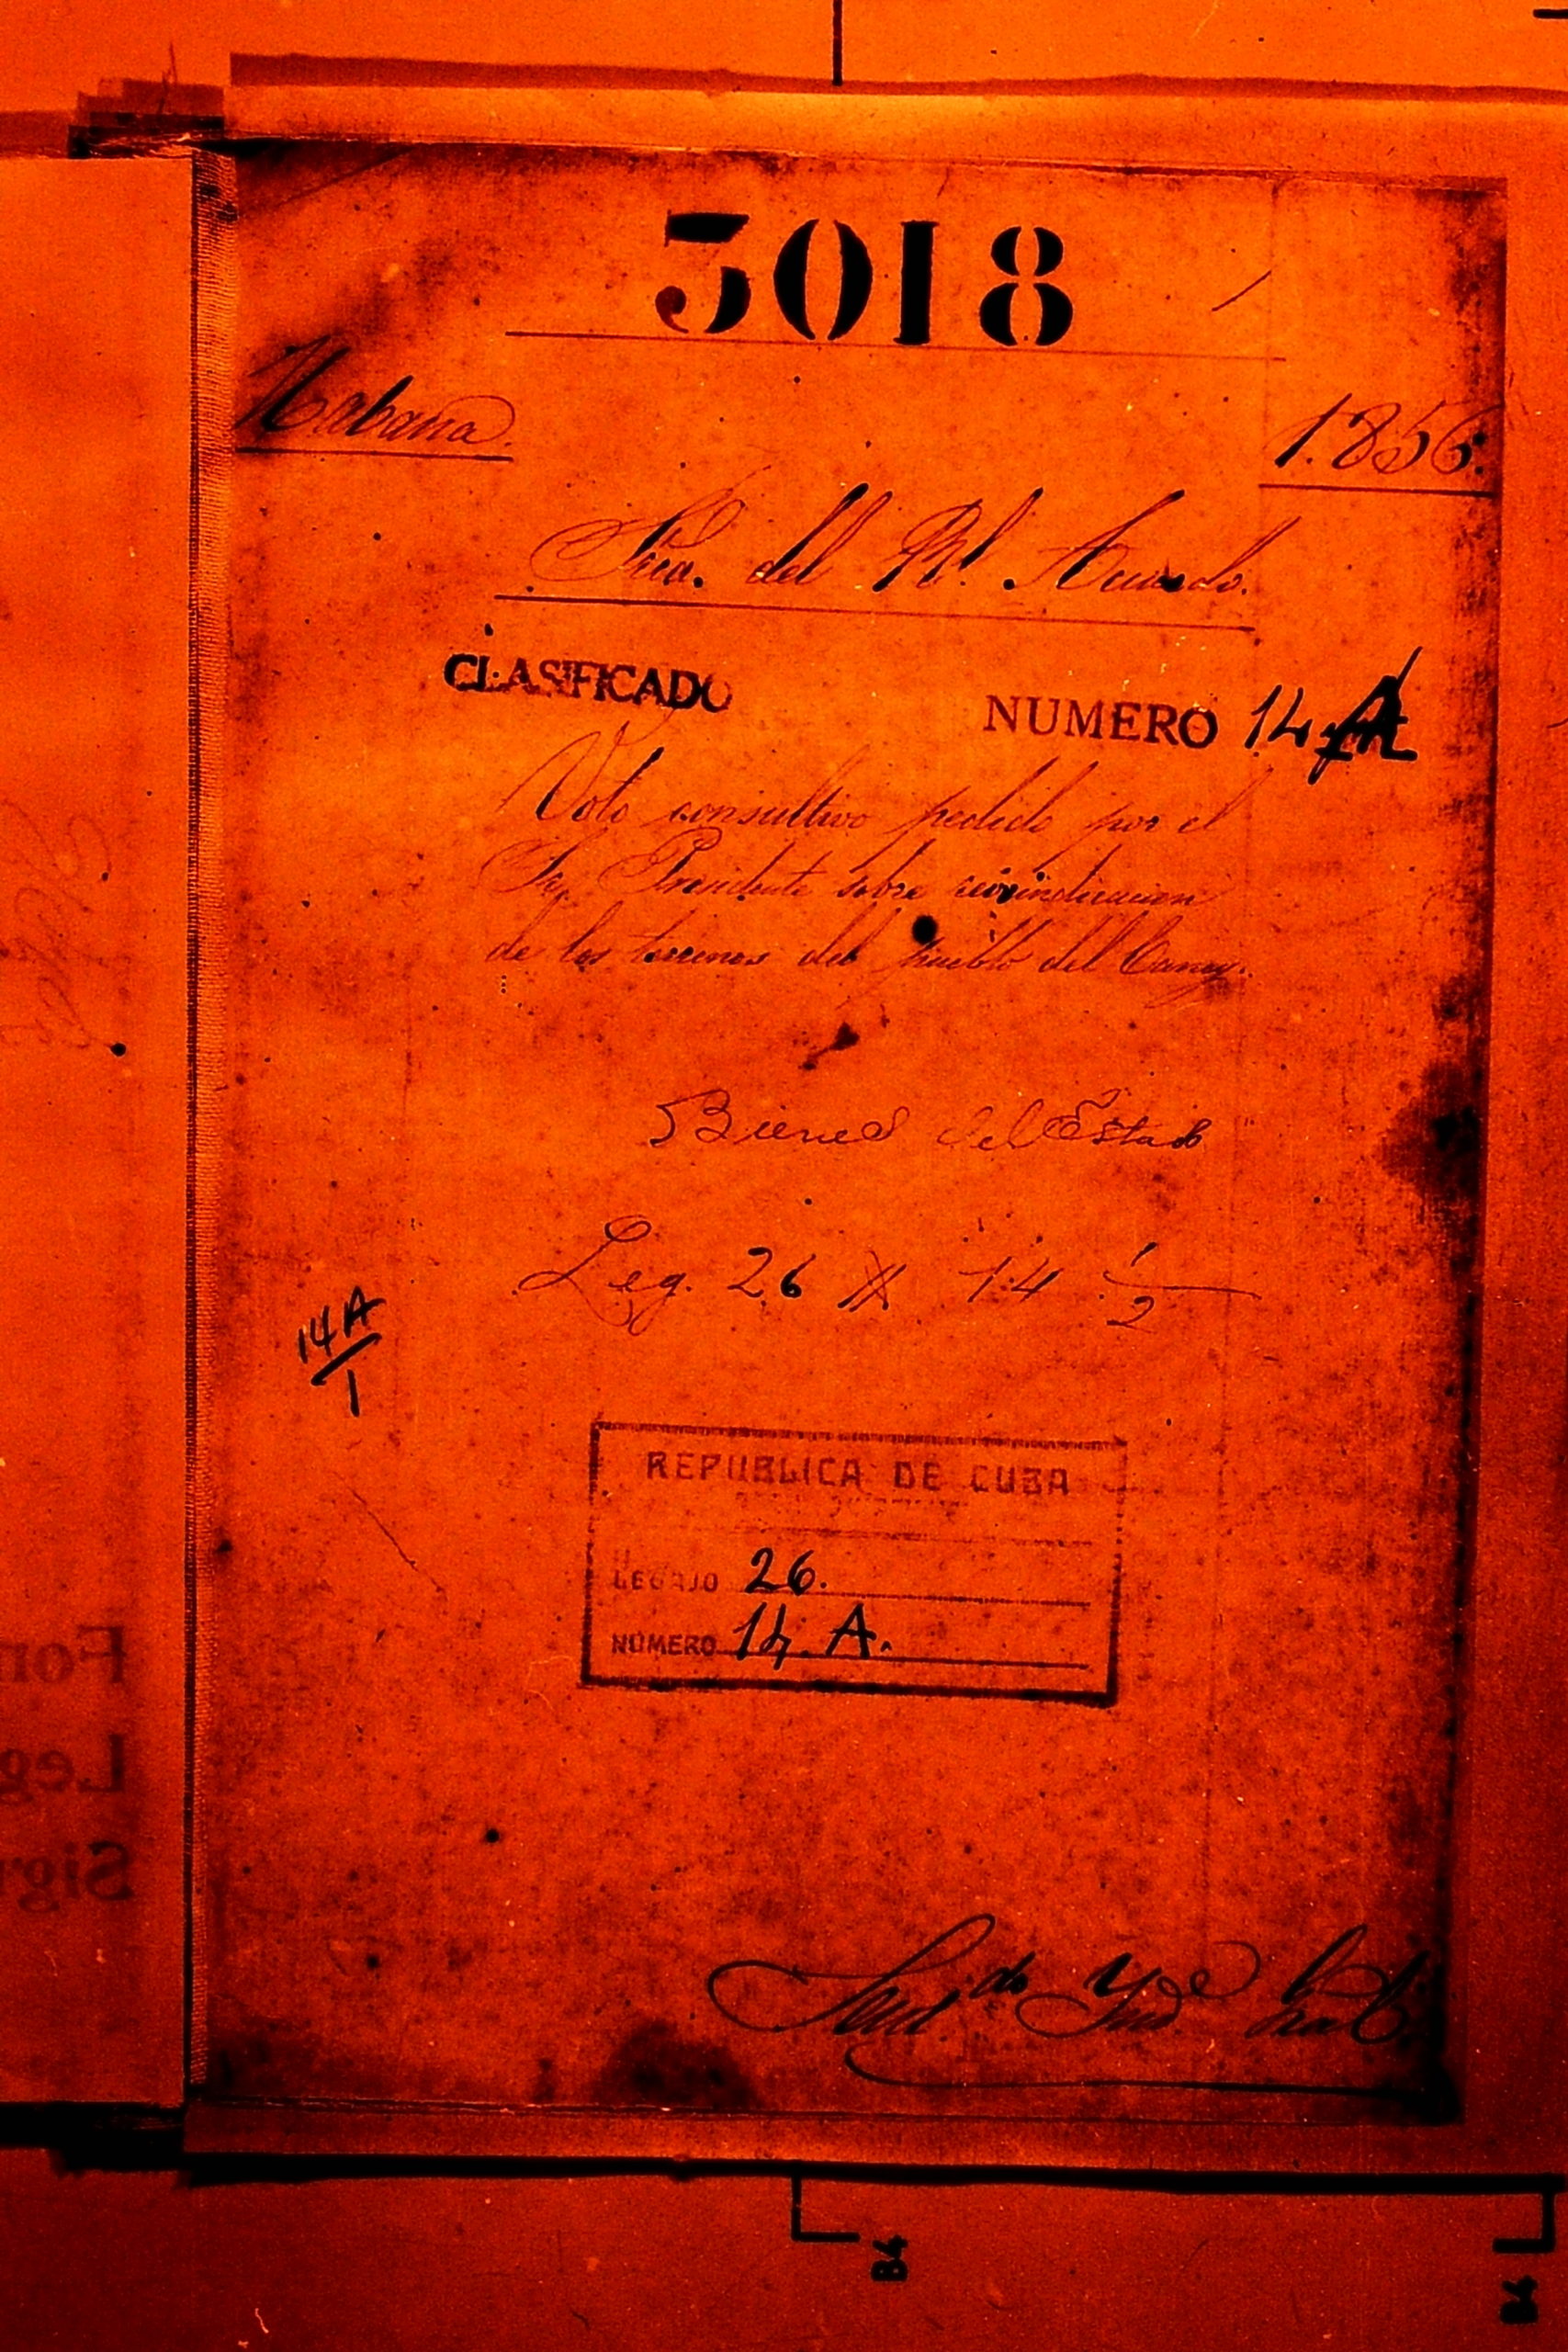 3018
Habana.
1.856.
Sria. del Rl. Acuerdo.
CLASIFICADO
NUMERO 14 A
Voto consultivo pedido por el
Sor. Presidente sobre reivindicacion
de los terrenos del pueblo del Caney.
Bienes del Estado
Leg. 26 # 14 1/2
14 A
1
REPUBLICA DE CUBA
LEGAJO 26.
NUMERO 14. A.
For
Leg
Sign
B4
B4